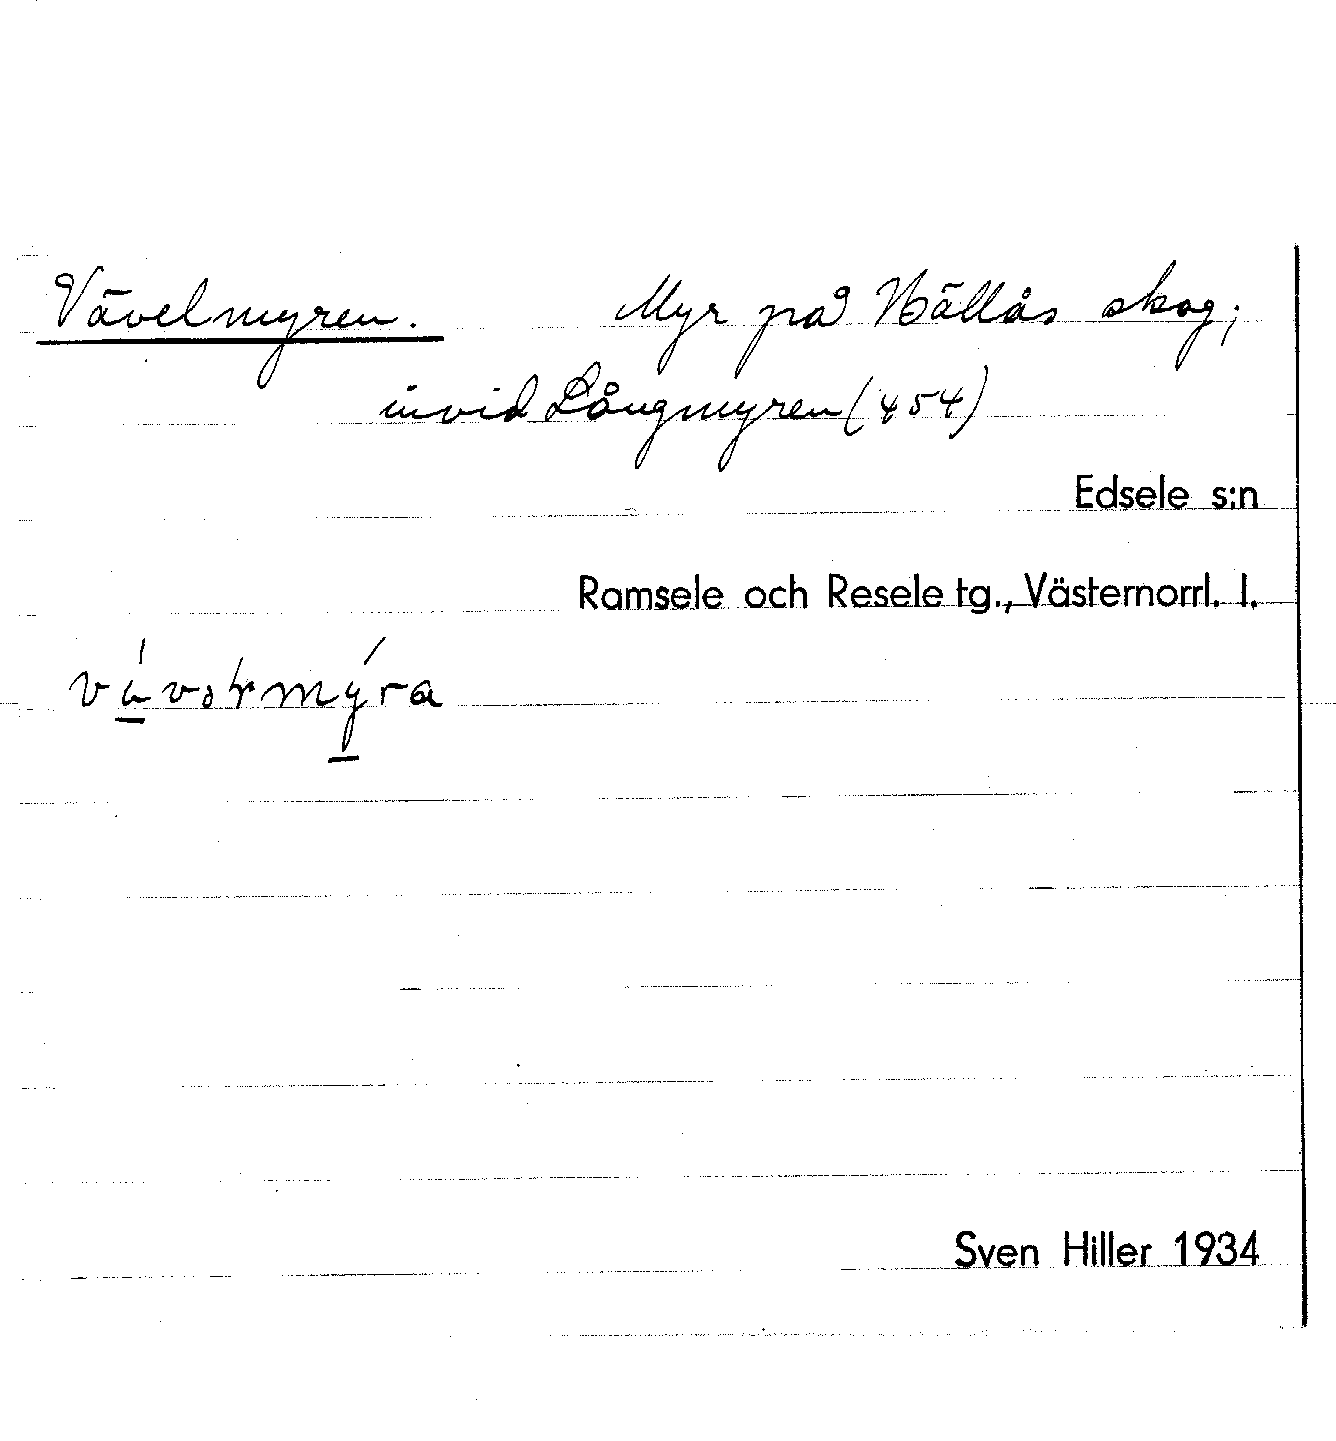 Vävelmyren. Myr på Hällås skog;
invid Långmyren (454)
Edsele s:n
Ramsele och Resele tg., Västernorrl. l.
Sven Hiller 1934